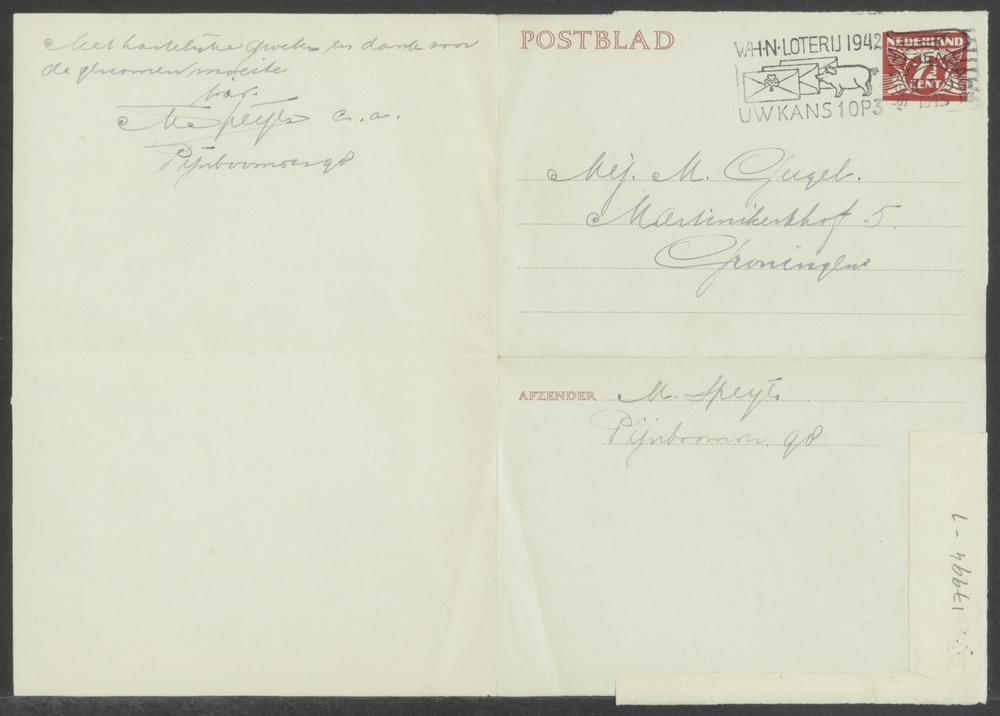 Met hartelijke groeten en dank voor
de genomen moeite
M Speyts e.a.
Pijnboomen 98
POSTBLAD
W.H.N. LOTERIJ 1942
UW KANS 1 OP 3
NEDERLAND
7½
CENT
Mej. M. Gugel.
Martinikerkhof 5.
Groningen
AFZENDER M. Speyts
Pijnboomen. 98
17994-1